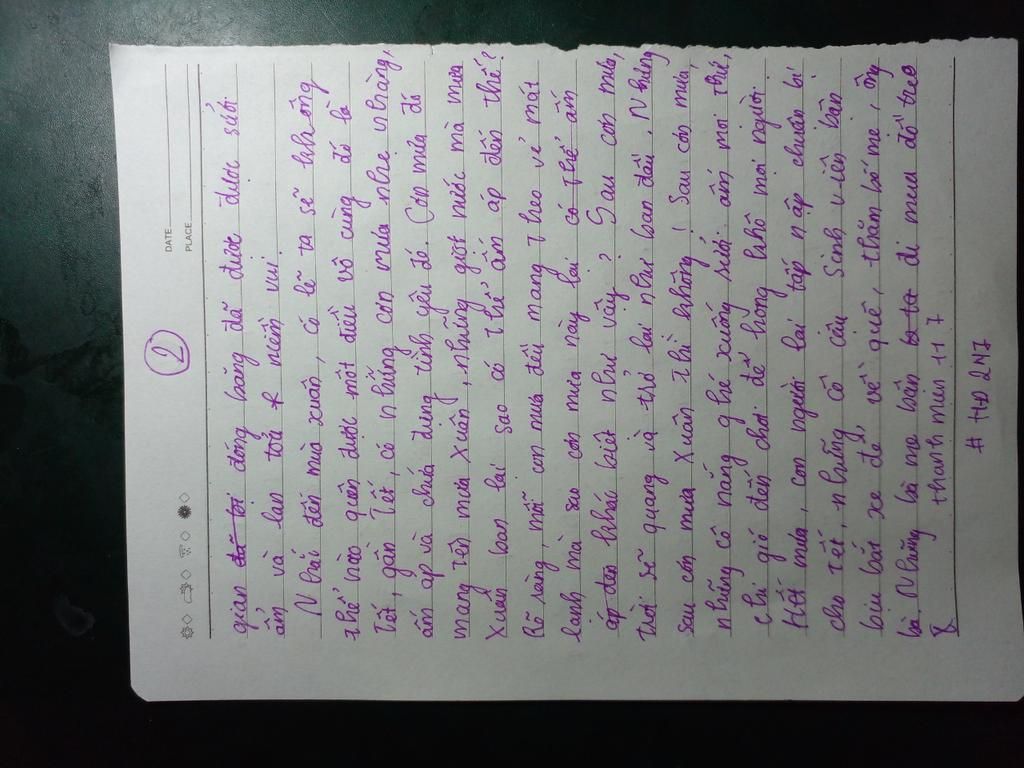 DATE
PLACE
2
gian đã tơi đóng băng đã được được sưởi
ấm và lan toả niềm vui.
Nhắc đến mùa xuân, có lẽ ta sẽ không
thể nào quên được một điều vô cùng đó là
Tết, gần Tết, có những cơn mưa nhẹ nhàng,
ấm áp và chứa đựng tình yêu đó. Cơn mưa đó
mang tên mưa Xuân, những giọt nước mà mưa
Xuân ban lại sao có thể ấm áp đến thế?
Rõ ràng, mỗi cơn mưa đều mang theo vẻ mát
lạnh mà sao cơn mưa này lại có thể ấm
áp đến khác biệt như vậy? Sau cơn mưa,
trời sẽ quang và trở lại như ban đầu. Nhưng
sau cơn mưa Xuân thì không! Sau cơn mưa,
những cô nắng ghé xuống sưởi ấm mọi thứ,
chị gió đến chơi để hong khô mọi người.
Hết mưa, con người lại tấp nập chuẩn bị
cho Tết, những cô cậu Sinh viên bận
bịu bắt xe để về quê, thăm bố mẹ, ông
bà. Những bà mẹ bận đi mua đồ treo
thanhmin 11 7
# HĐ 247